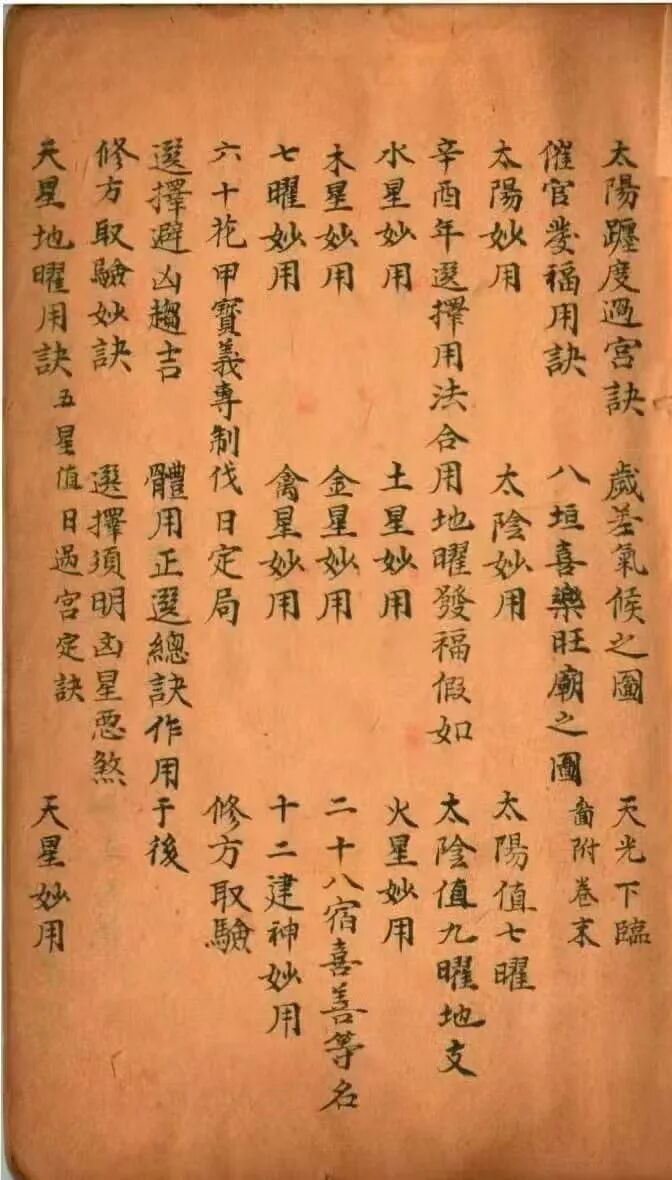 太陽躔度過宮訣 歲差氣候之圖 天光下臨
催官發福用訣 八垣喜樂旺廟之圖 圖附卷末
太陽妙用 太陰妙用 太陽值七曜
辛酉年選擇用法合用地曜發福假如 太陰值九曜地支
水星妙用 土星妙用 火星妙用
木星妙用 金星妙用 二十八宿喜善等名
七曜妙用 禽星妙用 十二建神妙用
六十花甲寶義專制伐日定局 修方取驗
選擇避凶趨吉 體用正選總訣作用于後
修方取驗妙訣 選擇須明凶星惡煞
天星地曜用訣 五星值日過宮定訣 天星妙用